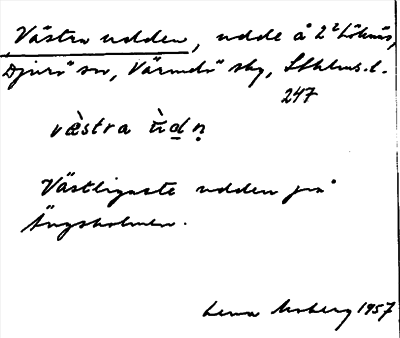 Västra udden, udde å 2² Löknäs,
Djurö sn, Värmdö sky, Sthlms.l.
247
væ̀stra ùdn̥
Västligaste udden på
Ängsholmen.
Lena Moberg 1957